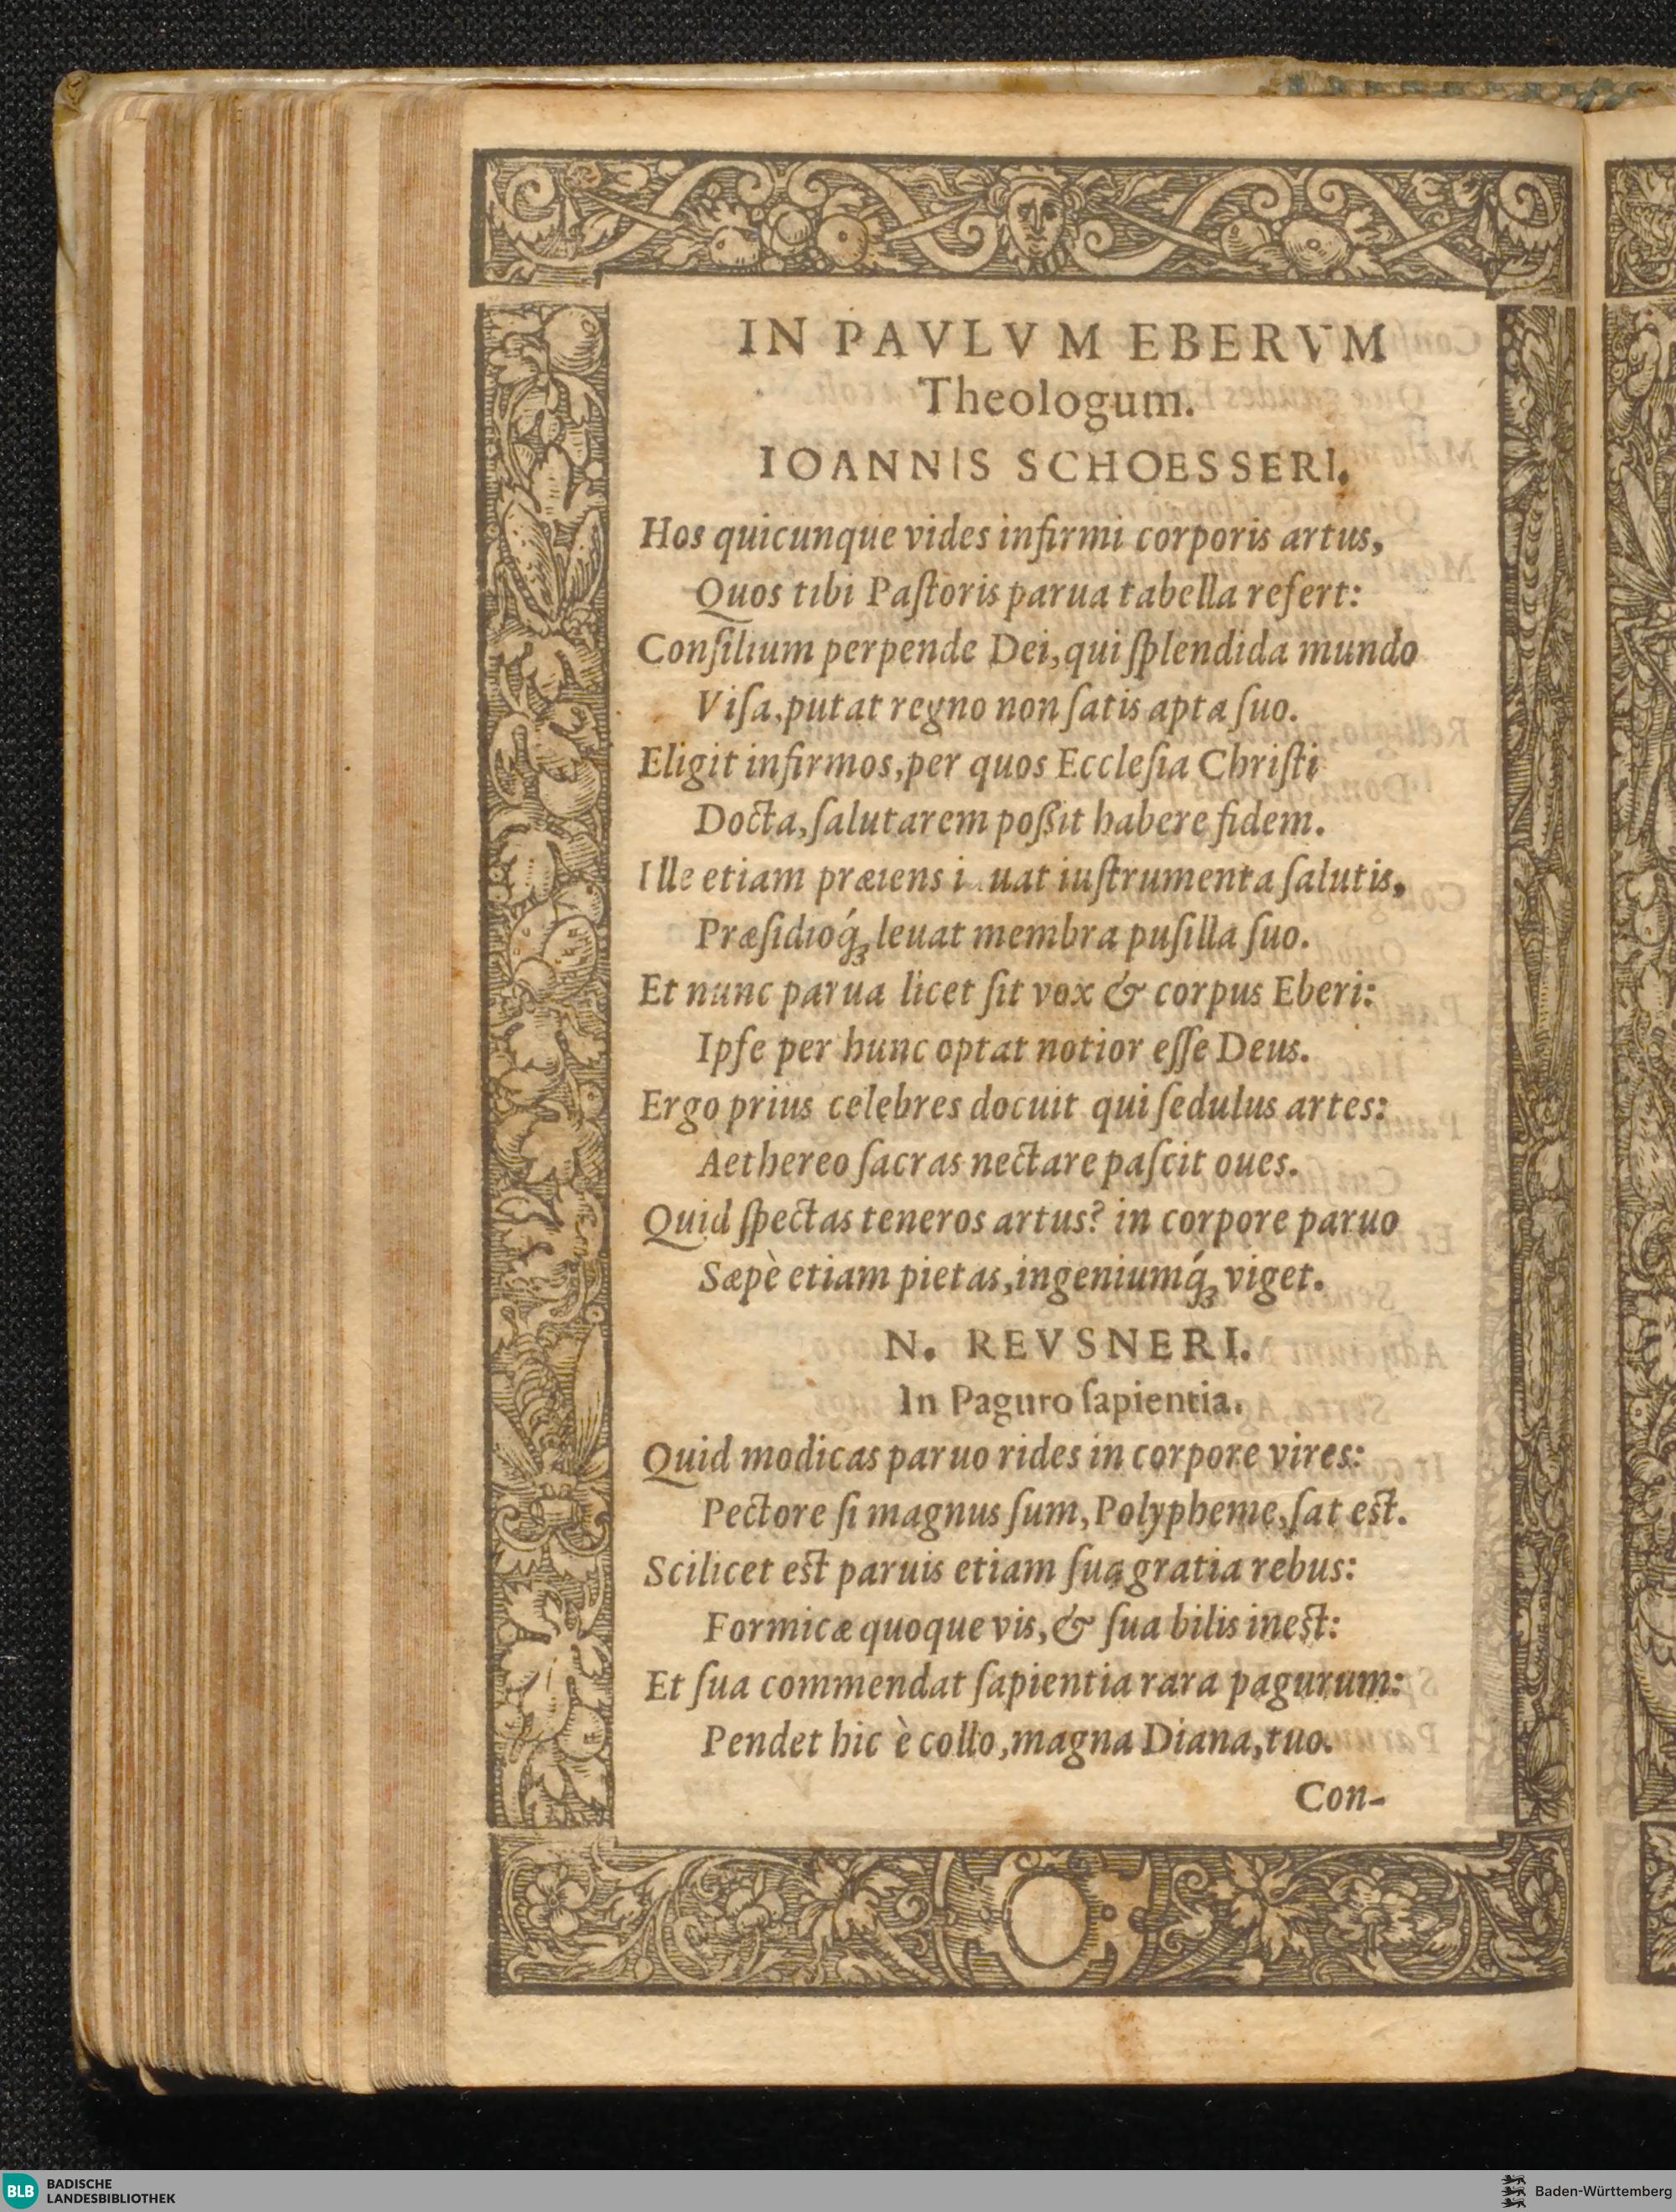 IN PAVLVM EBERVM
Theologum.
IOANNIS SCHOESSERI.
Hos quicunque vides infirmi corporis artus,
Quos tibi Paſtoris parua tabella refert:
Conſilium perpende Dei, qui ſplendida mundo
Viſa, putat regno non ſatis apta ſuo.
Eligit infirmos, per quos Eccleſia Chriſti
Docta, ſalutarem poßit habere fidem.
Ille etiam iuſtrumenta ſalutis,
Præſidioq́ꝫ leuat membra puſilla ſuo.
Et nunc parua licet ſit vox & corpus Eberi:
Ipſe per hunc optat notior eſſe Deus.
Ergo prius celebres docuit qui ſedulus artes:
Aethereo ſacras nectare paſcit oues.
Quid ſpectas teneros artus? in corpore paruo
Sæpè etiam pietas, ingeniumq́ꝫ viget.
N. REVSNERI.
In Paguro ſapientia.
Quid modicas paruo rides in corpore vires:
Pectore ſi magnus ſum, Polypheme, ſat eſt.
Scilicet eſt paruis etiam ſua gratia rebus:
Formicæ quoque vis, & ſua bilis ineſt:
Et ſua commendat ſapientia rara pagurum:
Pendet hic è collo, magna Diana, tuo.
Con-
BLB BADISCHE
LANDESBIBLIOTHEK
Baden-Württemberg